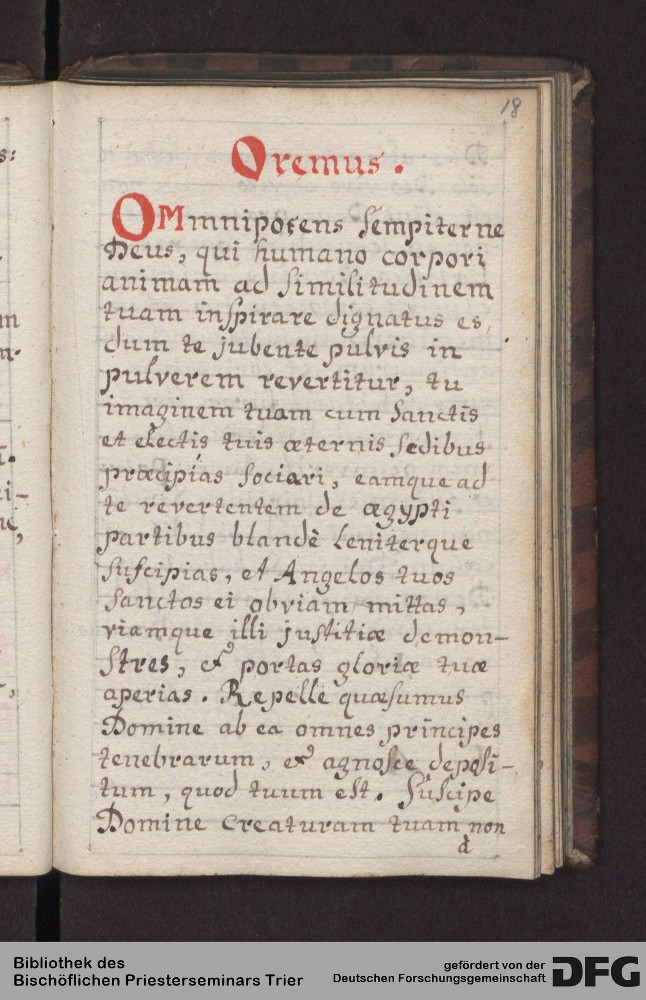 18
Oremus.
OMmnipotens sempiterne
Deus, qui humano corpori
animam ad similitudinem
tuam inspirare dignatus es,
dum te jubente pulvis in
pulverem revertitur, tu
imaginem tuam cum Sanctis
et electis tuis æternis sedibus
præcipias sociari, eamque ad
te revertentem de ægypti
partibus blandè leniterque
suscipias, et Angelos tuos
Sanctos ei obviam mittas,
viamque illi justitiæ demon-
stres, & portas gloriæ tuæ
aperias. Repelle quæsumus
Domine ab ea omnes principes
tenebrarum, & agnosce deposi-
tum, quod tuum est. Suscipe
Domine creaturam tuam non
à
Bibliothek des
Bischöflichen Priesterseminars Trier
gefördert von der
Deutschen Forschungsgemeinschaft
DFG